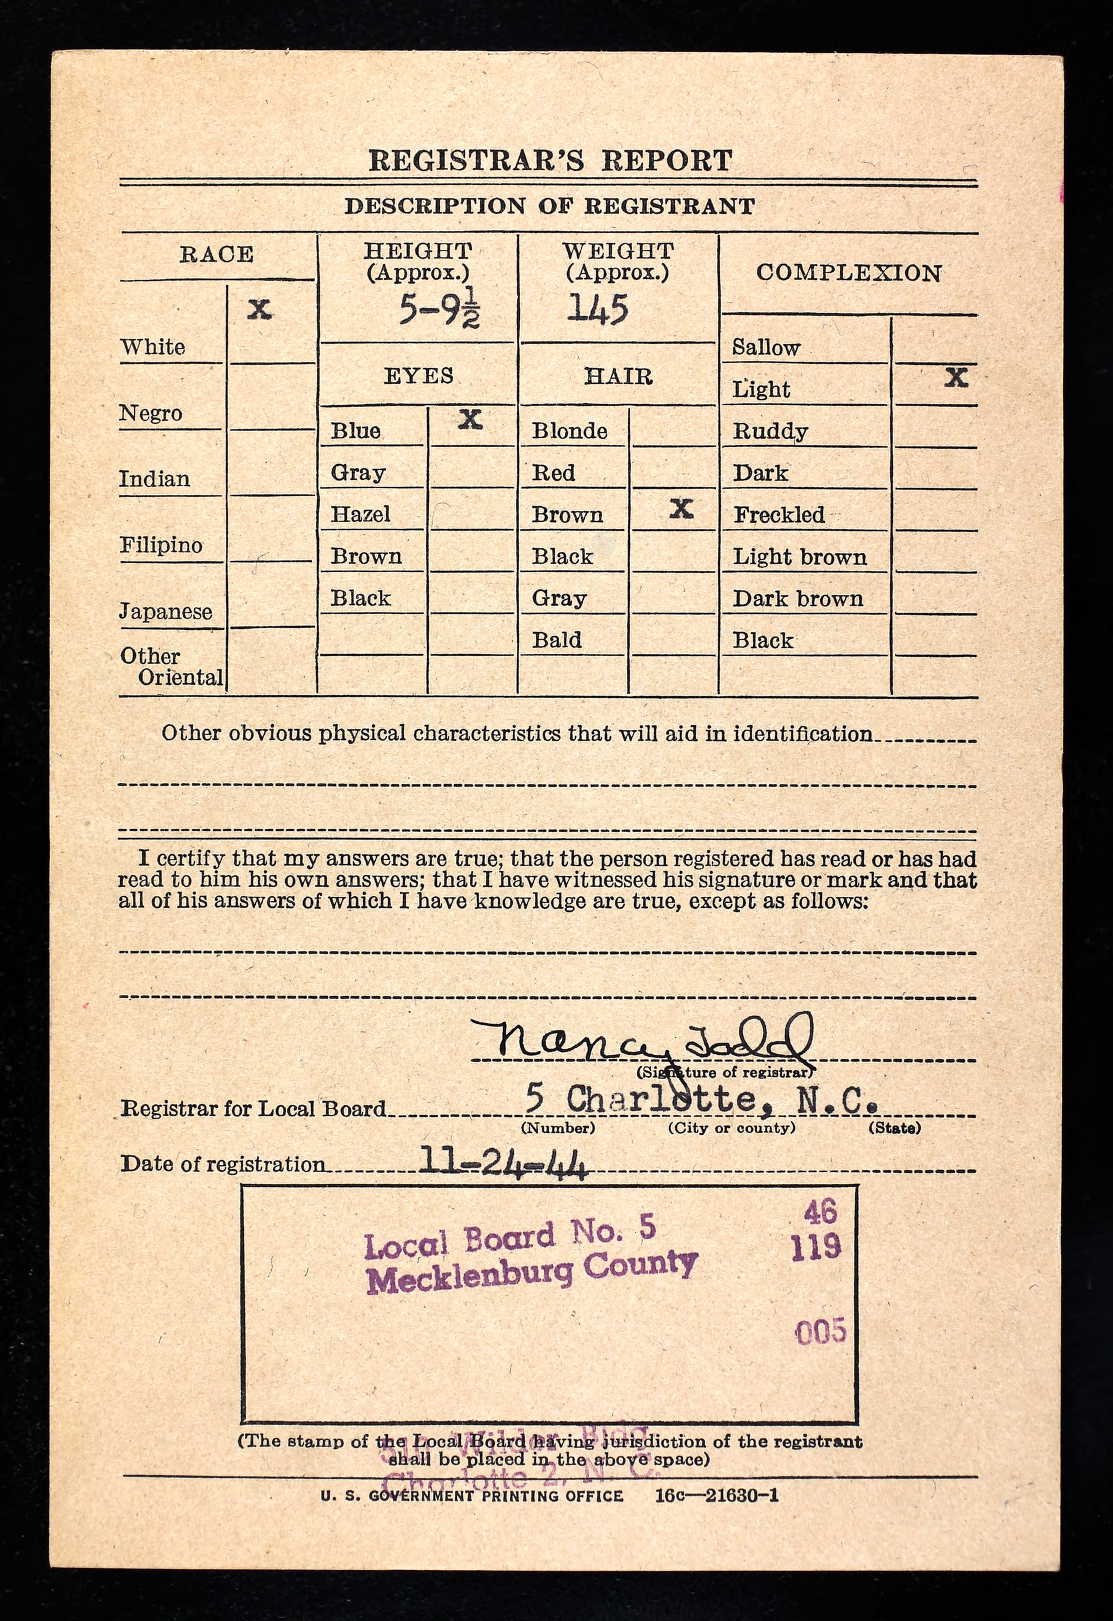 REGISTRAR'S REPORT
DESCRIPTION OF REGISTRANT
RACE
HEIGHT
(Approx.)
5-9½
WEIGHT
(Approx.)
145
COMPLEXION
X
White
Negro
Indian
Filipino
Japanese
Other
Oriental
EYES
Blue X
Gray
Hazel
Brown
Black
HAIR
Blonde
Red
Brown X
Black
Gray
Bald
Sallow
Light X
Ruddy
Dark
Freckled
Light brown
Dark brown
Black
Other obvious physical characteristics that will aid in identification
I certify that my answers are true; that the person registered has read or has had
read to him his own answers; that I have witnessed his signature or mark and that
all of his answers of which I have knowledge are true, except as follows:
Nancy Todd
(Signature of registrar)
Registrar for Local Board 5 Charlotte, N.C.
(Number) (City or county) (State)
Date of registration 11-24-44
Local Board No. 5 46
Mecklenburg County 119
005
(The stamp of the Local Board having jurisdiction of the registrant
shall be placed in the above space)
Wilder Bldg
Charlotte 2, N. C.
U. S. GOVERNMENT PRINTING OFFICE 16c—21630-1